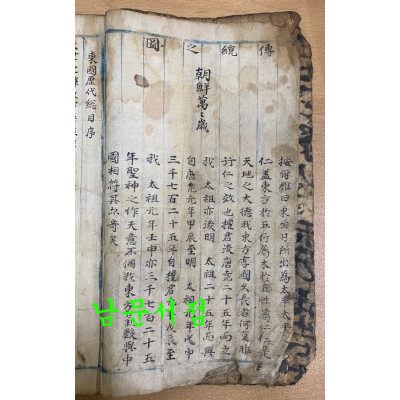 傳統之圖
朝鮮萬〻歲
按爾雅曰東至日所出為太平太平
仁盖東方於五行屬木於五性
天地之大德我東方享國久長者何莫非
行仁之效也檀君後唐堯二十五年而立
我 太祖亦後明 太祖二十五年而興
自唐堯元年甲辰至明 太祖元年戊申
三千七百二十五年自檀君元年戊辰至
我 太祖元年壬申亦三千七百二十五
年聖神之作天意不偶我東方曆數與中
國相符其亦奇矣
東國歷代總目序
남문서점